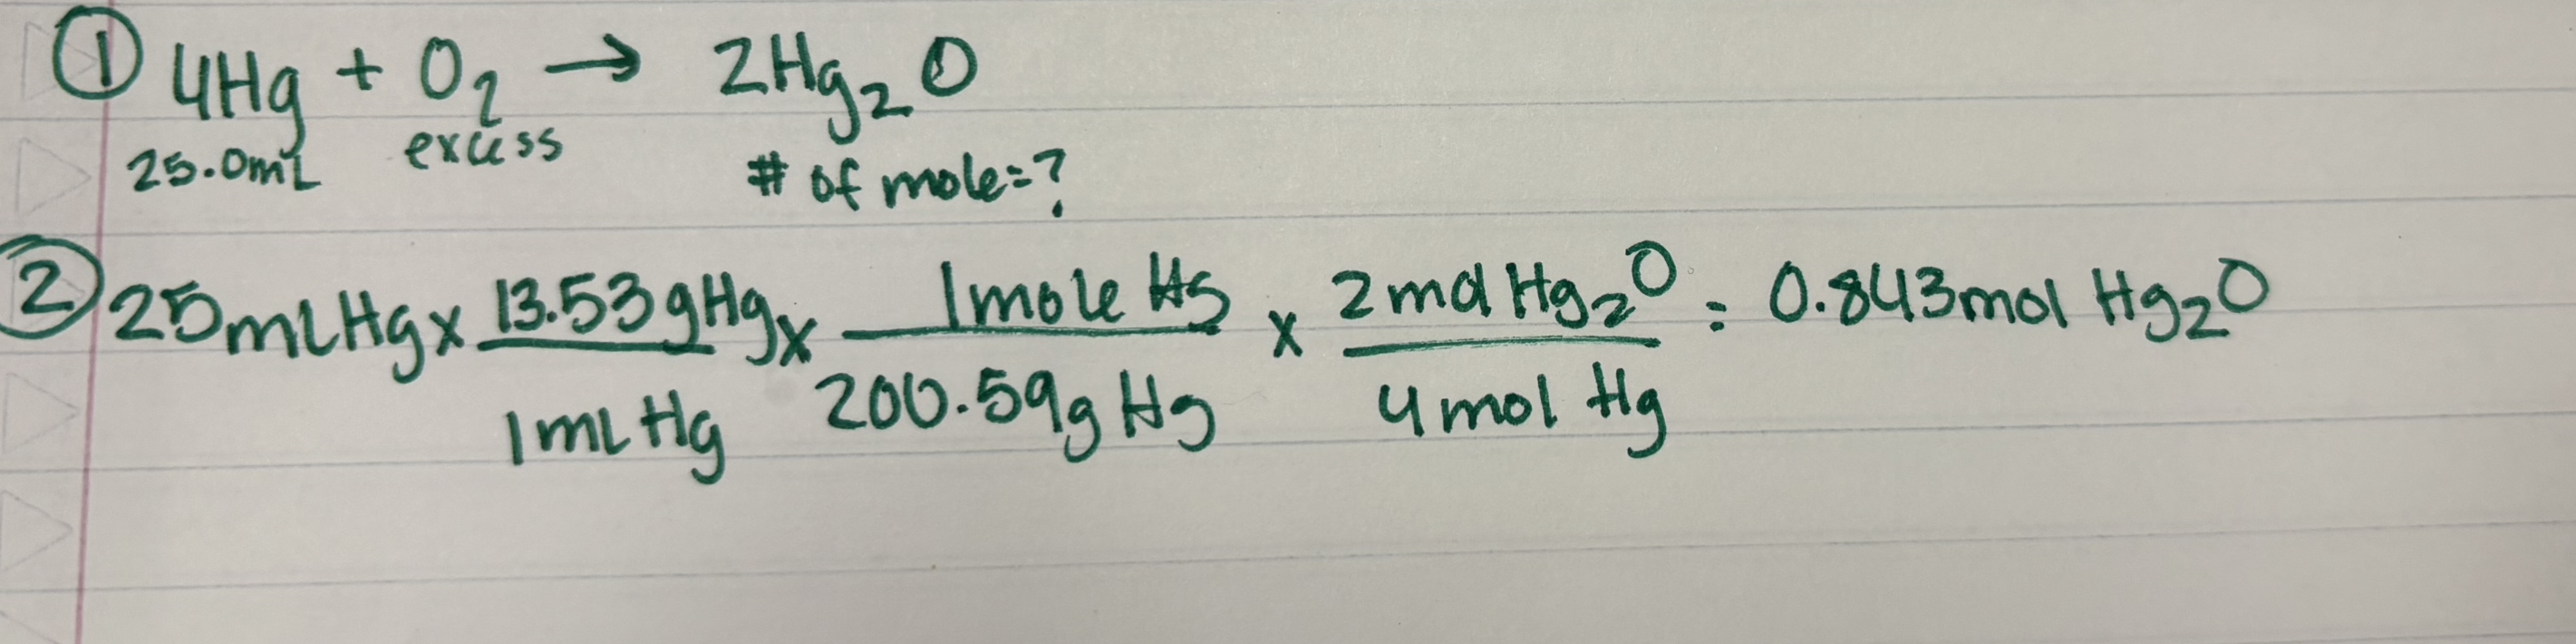 ① 4Hg + O₂ → 2Hg₂O
25.0mL excess # of mole=?
② 25mLHg x 13.53gHg/1mL Hg x 1mole Hg/200.59g Hg x 2mol Hg₂O/4mol Hg = 0.843mol Hg₂O